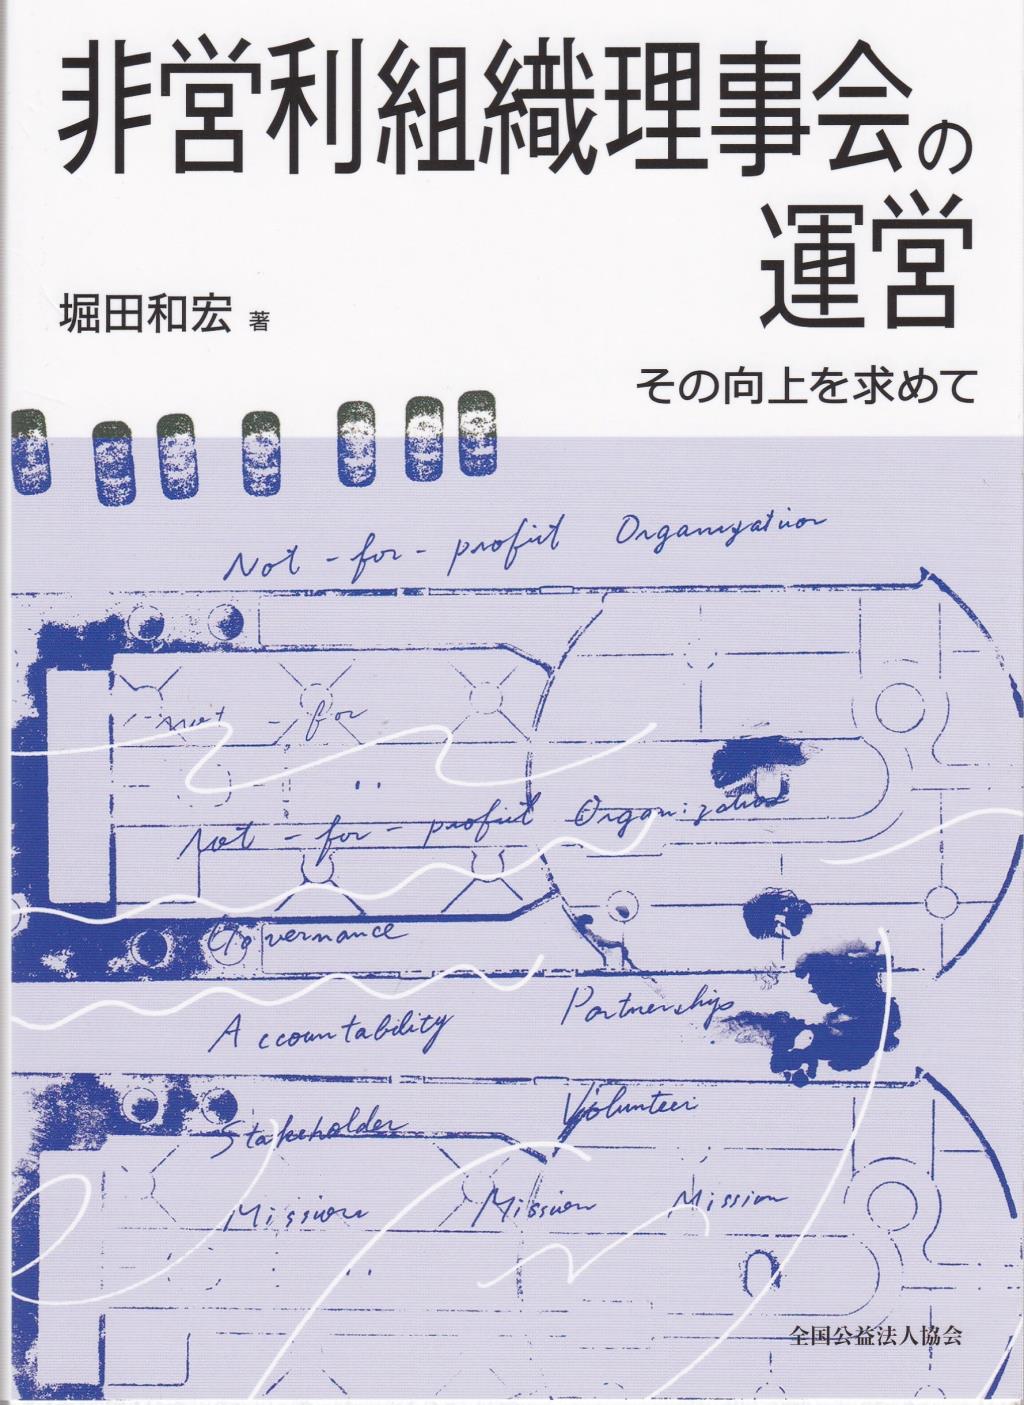 非営利組織理事会の
運営
堀田和宏 著
その向上を求めて
Not-for-profit Organization
not - for
Not-for-profit Organization
Governance
Accountability
Partnership
Stakeholder
Volunteer
Mission Mission Mission
全国公益法人協会